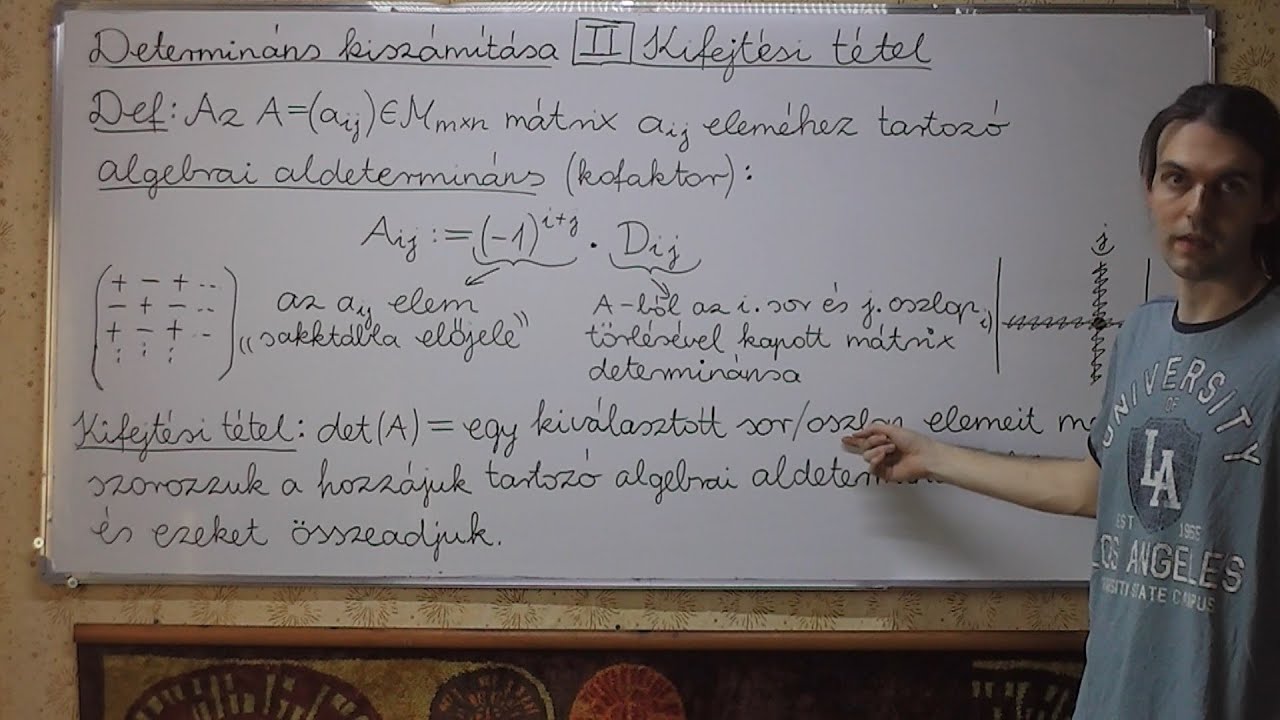 Determináns kiszámítása II Kifejtési tétel
Def: Az A=(aij)∈Mm×n mátrix aij eleméhez tartozó
algebrai aldetermináns (kofaktor):
Aij := (-1)^i+j · Dij
+ − + ...
− + − ...
+ − + ...
⋮ ⋮ ⋮
az aij elem
"sakktábla előjele"
A-ból az i. sor és j. oszlop
törlésével kapott mátrix
determinánsa
j)
i)
Kifejtési tétel: det(A) = egy kiválasztott sor/oszlop elemeit
szorozzuk a hozzájuk tartozó algebrai
és ezeket összeadjuk.
UNIVERSITY
OF
LA
EST 1965
LOS ANGELES
VARSITY STATE CAMPUS